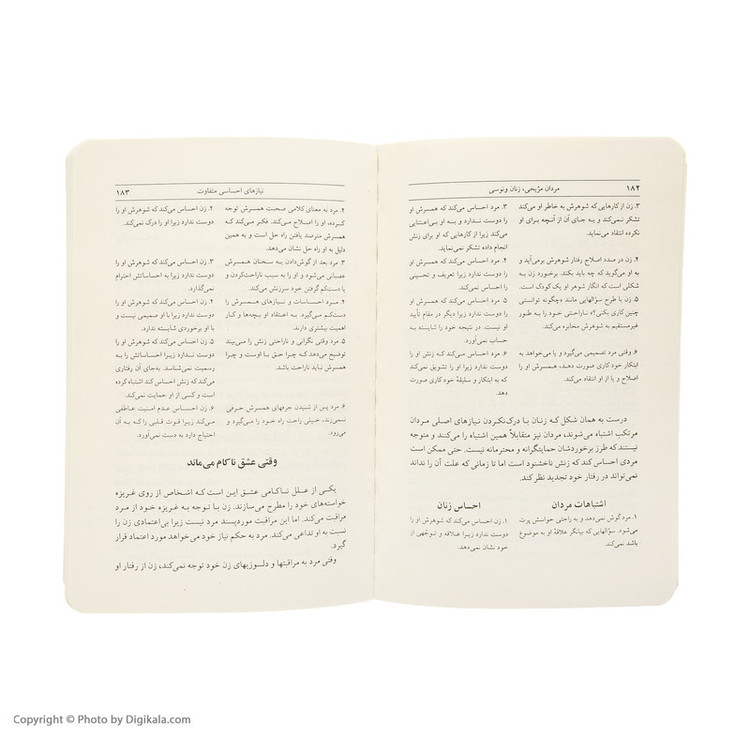 ۱۸۲ مردان مرّیخی، زنان ونوسی
۳. زن از کارهایی که شوهرش به خاطر او می‌کند
تشکر نمی‌کند و به جای آن از آنچه برای او
نکرده انتقاد می‌نماید.
۳. مرد احساس می‌کند که همسرش او
را دوست ندارد و به او بی‌اعتنایی
می‌کند زیرا از کارهایی که او برای زنش
انجام داده تشکر نمی‌نماید.
۴. زن در صدد اصلاح رفتار شوهرش برمی‌آید و
به او می‌گوید که چه باید بکند. برخورد زن به
شکلی است که انگار شوهر او یک کودک است.
۴. مرد احساس می‌کند که همسرش او
را دوست ندارد زیرا تعریف و تحسینی
از او نمی‌کند.
۵. زن با طرح سؤالهایی مانند «چگونه توانستی
چنین کاری بکنی؟»، ناراحتی خود را به طور
غیرمستقیم به شوهرش مخابره می‌کند.
۵. مرد احساس می‌کند که همسرش او
را دوست ندارد زیرا دیگر در مقام تأیید
او نیست. در نتیجه خود را شایسته به
حساب نمی‌آورد.
۶. وقتی مرد تصمیمی می‌گیرد و یا می‌خواهد به
ابتکار خود کاری صورت دهد، همسرش او را
اصلاح و یا از او انتقاد می‌کند.
۶. مرد احساس می‌کند که زنش او را
دوست ندارد زیرا او را تشویق نمی‌کند
که به ابتکار و سلیقهٔ خود کاری صورت
دهد.
درست به همان شکل که زنان با درک‌نکردن نیازهای اصلی مردان
مرتکب اشتباه می‌شوند، مردان نیز متقابلاً همین اشتباه را می‌کنند و متوجه
نیستند که طرز برخوردشان حمایتگرانه و محترمانه نیست. حتی ممکن است
مردی احساس کند که زنش ناخشنود است اما تا زمانی که علت آن را نداند
نمی‌تواند در رفتار خود تجدید نظر کند.
اشتباهات مردان
احساس زنان
۱. مرد گوش نمی‌دهد و به راحتی حواسش پرت
می‌شود. سؤالهایی که بیانگر علاقهٔ او به موضوع
باشد نمی‌کند.
۱. زن احساس می‌کند که شوهرش او را
دوست ندارد زیرا علاقه و توجّهی از
خود نشان نمی‌دهد.
نیازهای احساسی متفاوت ۱۸۳
۲. مرد به معنای کلامی صحبت همسرش توجه
کرده، او را اصلاح می‌کند. فکر می‌کند که
همسرش مترصد یافتن راه حل است و به همین
دلیل به او راه حل نشان می‌دهد.
۲. زن احساس می‌کند که شوهرش او را
دوست ندارد زیرا او را درک نمی‌کند.
۳. مرد بعد از گوش‌دادن به سخنان همسرش
عصبانی می‌شود و او را به سبب ناراحت‌کردن و
یا دست‌کم گرفتن خود سرزنش می‌کند.
۳. زن احساس می‌کند که شوهرش او را
دوست ندارد زیرا به احساساتش احترام
نمی‌گذارد.
۴. مرد احساسات و نیازهای همسرش را
دست‌کم می‌گیرد. به اعتقاد او بچه‌ها و کار
اهمیت بیشتری دارند.
۴. زن احساس می‌کند که شوهرش او را
دوست ندارد زیرا با او صمیمی نیست و
با او برخوردی شایسته ندارد.
۵. مرد وقتی نگرانی و ناراحتی زنش را می‌بیند
توضیح می‌دهد که چرا حق با اوست و چرا
همسرش نباید ناراحت باشد.
۵. زن احساس می‌کند که شوهرش او را
دوست ندارد زیرا احساساتش را به
رسمیت نمی‌شناسد. به‌جای آن رفتاری
می‌کند که زنش احساس کند اشتباه کرده
است و کسی از او حمایت نمی‌کند.
۶. مرد پس از شنیدن حرفهای همسرش حرفی
نمی‌زند، خیلی راحت راه خود را می‌گیرد و
می‌رود.
۶. زن احساس عدم امنیت عاطفی
می‌کند زیرا قوت قلبی را که به آن
احتیاج دارد به دست نمی‌آورد.
وقتی عشق ناکام می‌ماند
یکی از علل ناکامی عشق این است که اشخاص از روی غریزه
خواسته‌های خود را مطرح می‌سازند. زن با توجه به غریزه خود از مرد
مراقبت می‌کند. اما این مراقبت موردپسند مرد نیست زیرا بی‌اعتمادی زن را
نسبت به او تداعی می‌کند. مرد به حکم نیاز خود می‌خواهد مورد اعتماد قرار
گیرد.
وقتی مرد به مراقبتها و دلسوزیهای زن خود توجه نمی‌کند، زن از رفتار او
Copyright © Photo by Digikala.com